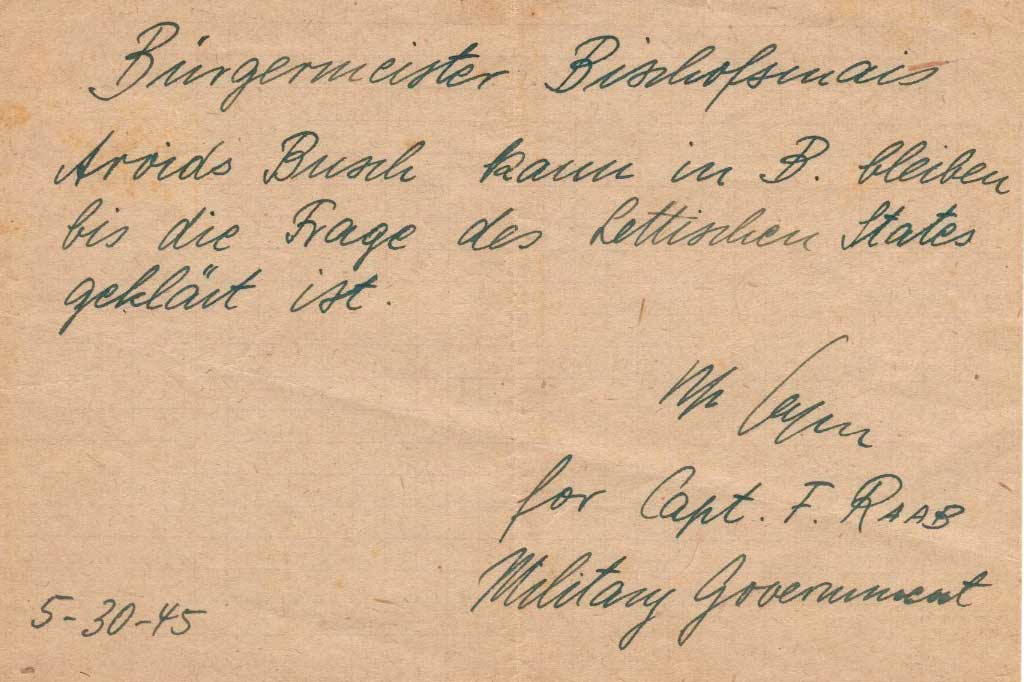 Bürgermeister Bischofsmais
Arvids Busch kann in B. bleiben
bis die Frage des Lettischen States
geklärt ist.
for Capt. F. RAAB
Military Government
5-30-45